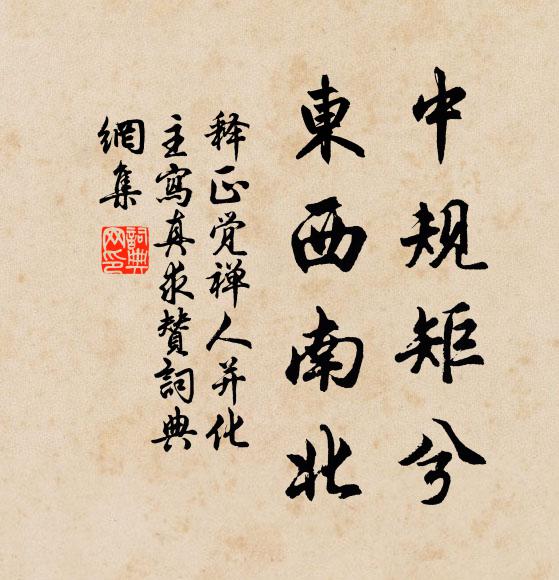 中规矩兮
東西南北
释正觉禅人并化
主寫真求赞詞典
網集
詞典网印